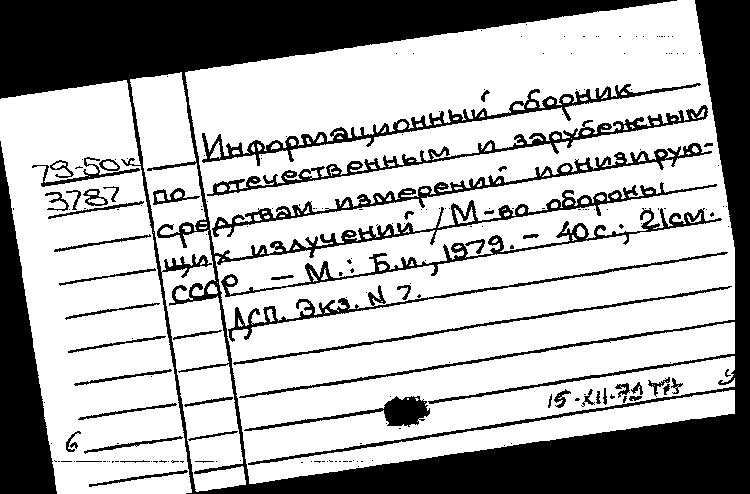 Информационный сборник
79-50к
по отечественным и зарубежным
3787
средствам измерений ионизирую-
щих излучений / М-во обороны
СССР. - М.: Б.и., 1979. - 40 с.; 21 см.
ДСП. Экз. N 7.
15-XII-79
6